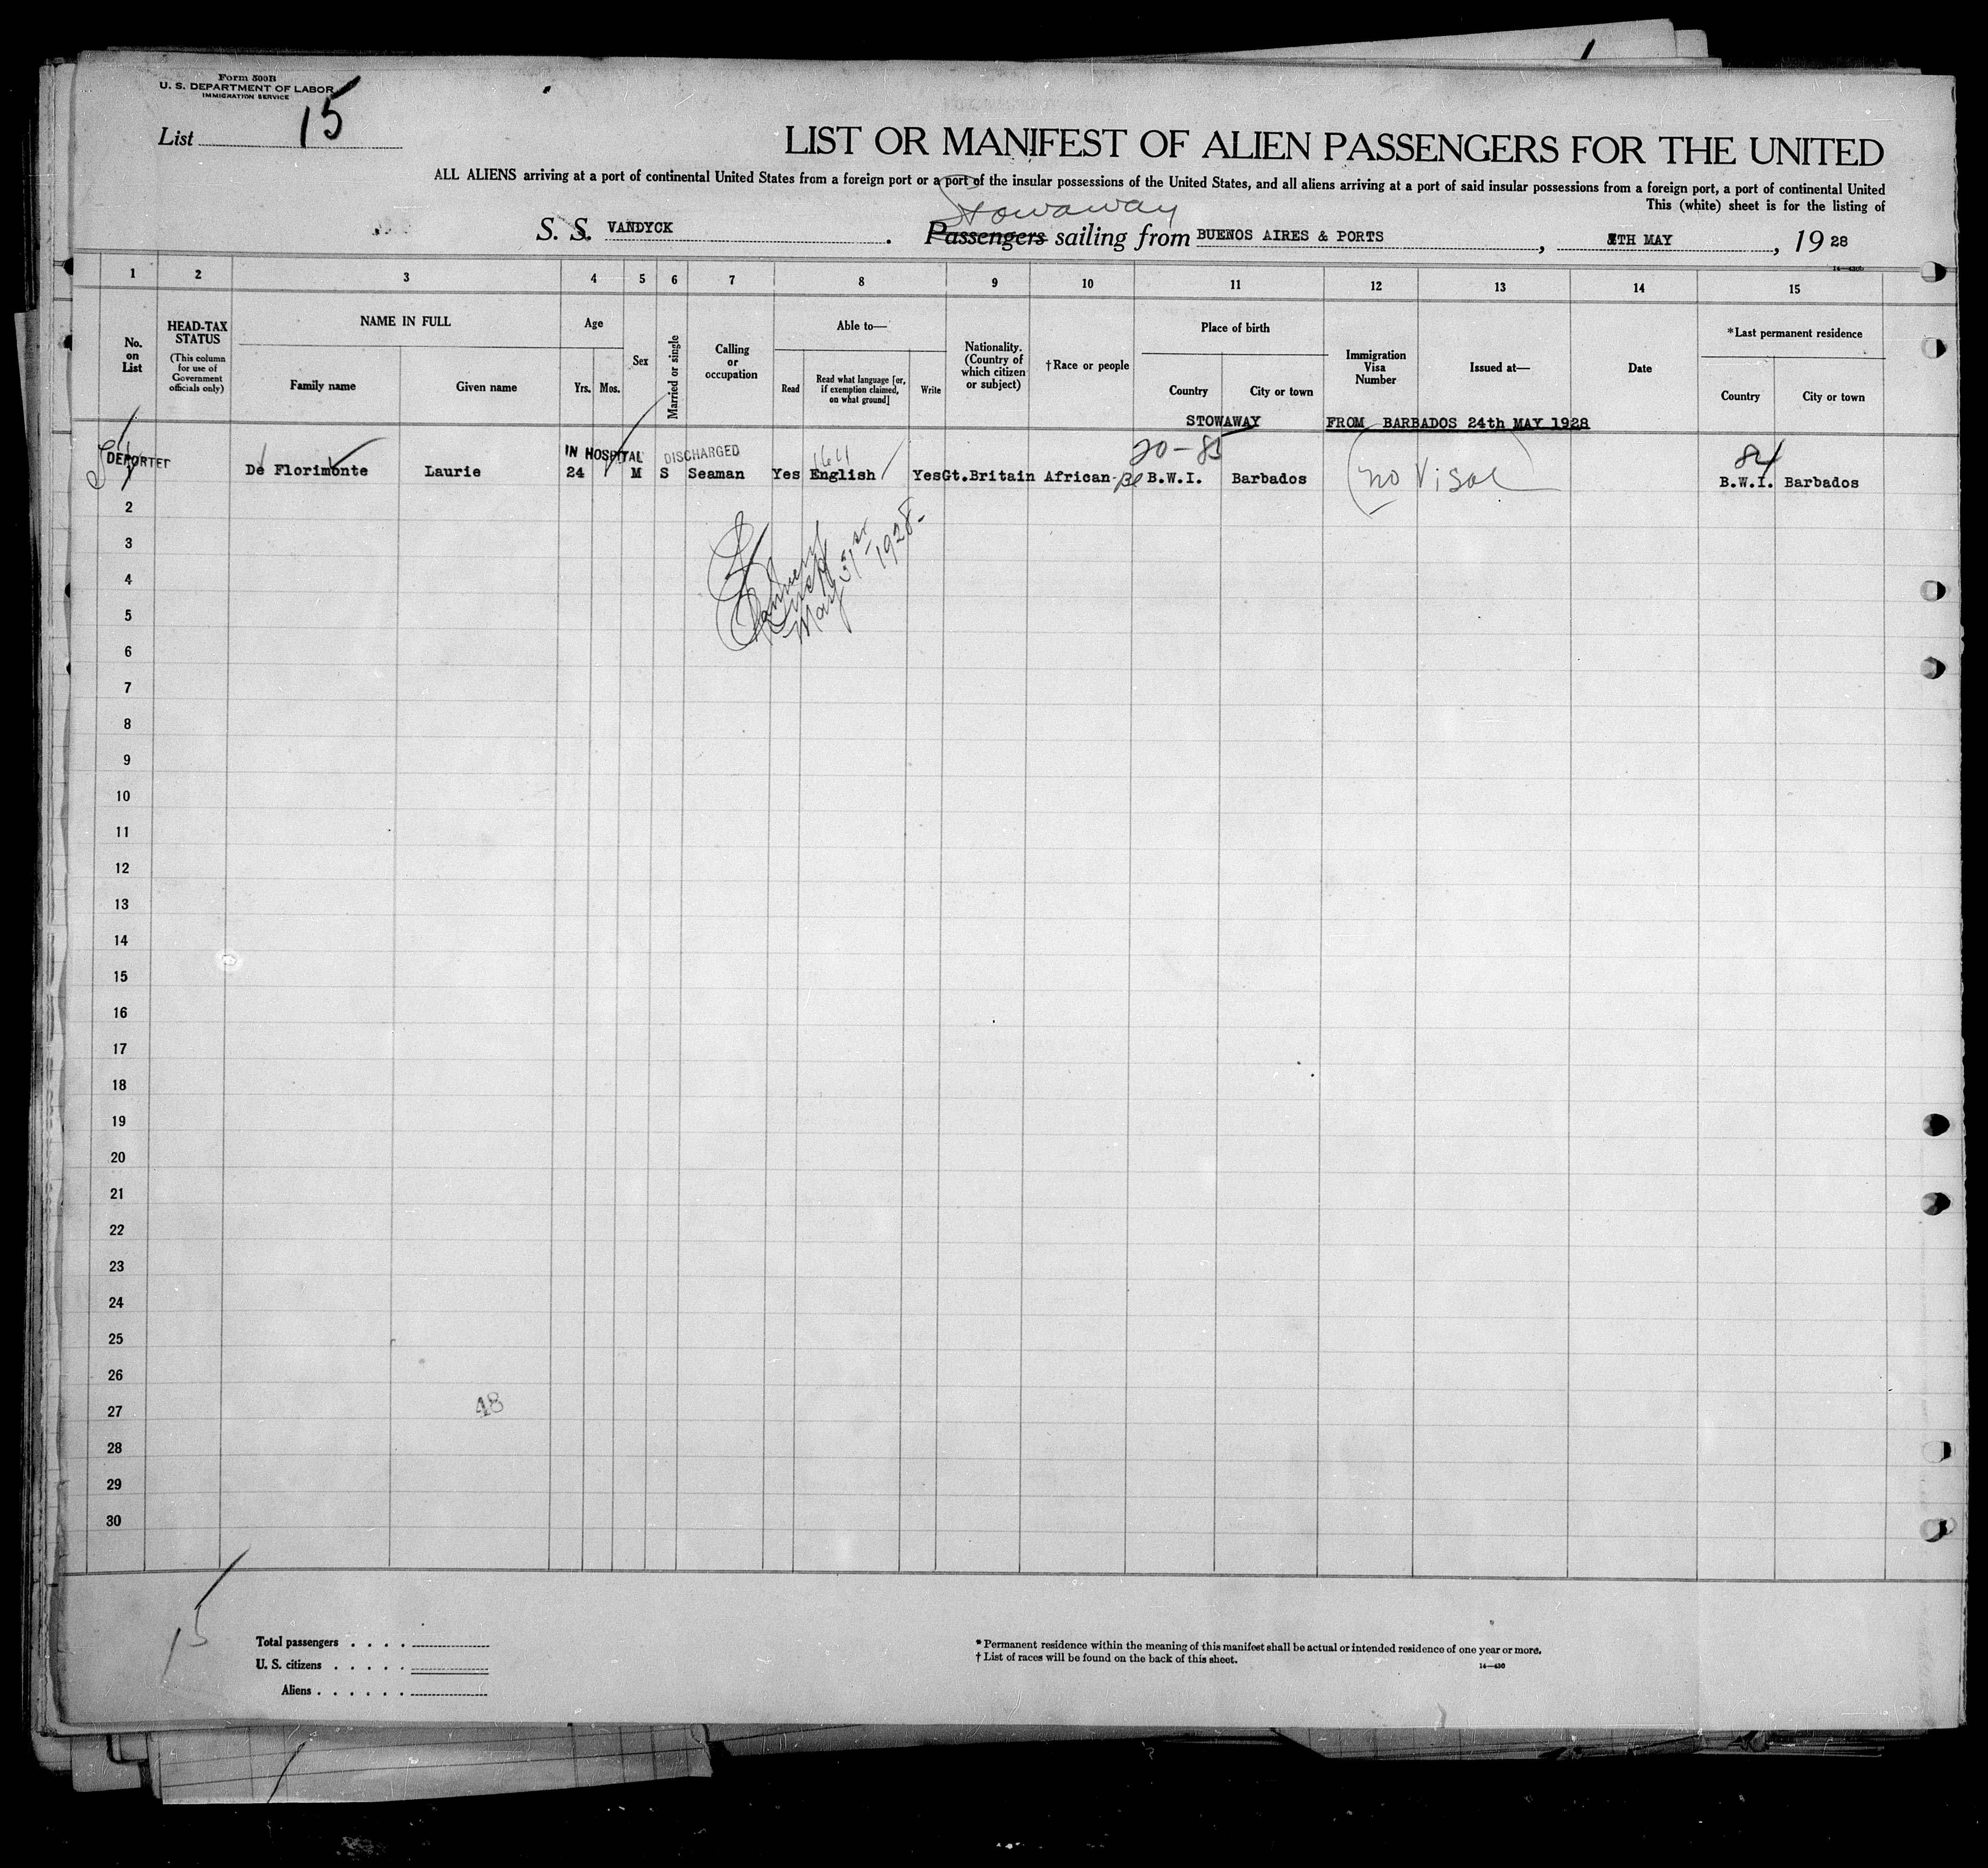 Form 500B
U. S. DEPARTMENT OF LABOR
IMMIGRATION SERVICE
List 15
LIST OR MANIFEST OF ALIEN PASSENGERS FOR THE UNITED
ALL ALIENS arriving at a port of continental United States from a foreign port or a port of the insular possessions of the United States, and all aliens arriving at a port of said insular possessions from a foreign port, a port of continental United
This (white) sheet is for the listing of
Stowaway
S. S. VANDYCK . Passengers sailing from BUENOS AIRES & PORTS , TH MAY , 19 28
1 2 3 4 5 6 7 8 9 10 11 12 13 14 15
No. on List
HEAD-TAX STATUS
(This column for use of Government officials only)
NAME IN FULL
Family name
Given name
Age
Yrs. Mos.
Sex
Married or single
Calling or occupation
Able to—
Read
Read what language [or, if exemption claimed, on what ground]
Write
Nationality. (Country of which citizen or subject)
†Race or people
Place of birth
Country
City or town
Immigration Visa Number
Issued at—
Date
*Last permanent residence
Country
City or town
STOWAWAY FROM BARBADOS 24th MAY 1928
IN HOSPITAL DISCHARGED 20-85 84
DEPORTED De Florimonte Laurie 24 M S Seaman Yes English Yes Gt.Britain African-Bl B.W.I. Barbados no Visa B.W.I. Barbados
May 31st 1928-
2
3
4
5
6
7
8
9
10
11
12
13
14
15
16
17
18
19
20
21
22
23
24
25
26
27
48
28
29
30
15
Total passengers . . . .
U. S. citizens . . . . .
Aliens . . . . . .
* Permanent residence within the meaning of this manifest shall be actual or intended residence of one year or more.
† List of races will be found on the back of this sheet.
14—430